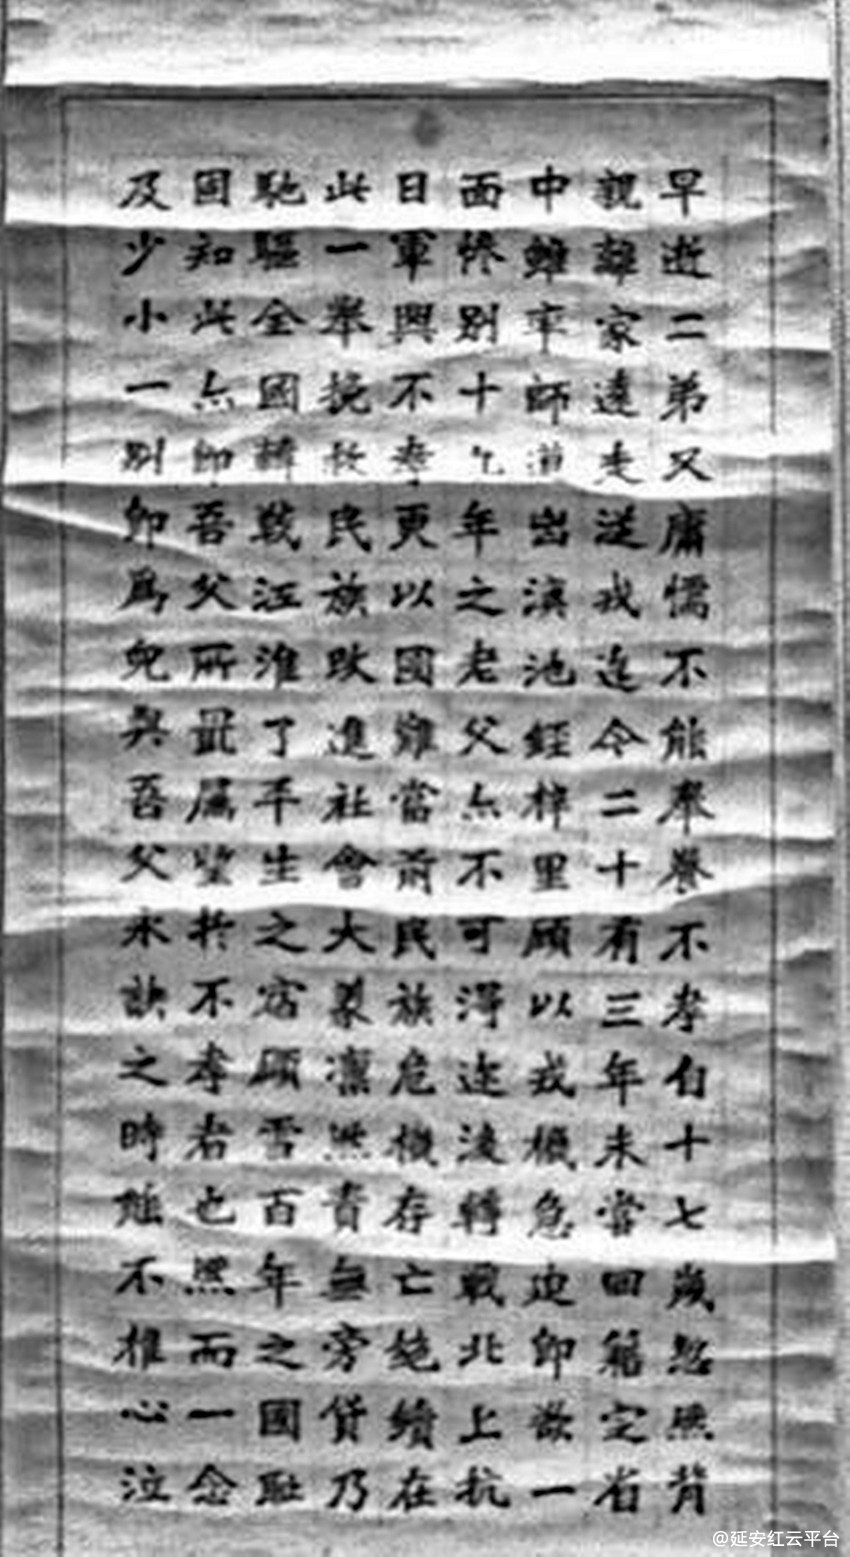 早逝二弟又庸懦不能奉養不孝自十七歲忽然背
親離家遠走從戎迄今二十有三年未嘗回籍定省
中雖率師道出滇池經梓里顧以戎機急迫即欲一
面慘別十九年之老父亦不可得迄後轉戰北上抗
日軍興不孝更以國難當前民族危機存亡絕續在
此一舉挽救民族改進社會大義凜然責無旁貸乃
馳驅全國轉戰江淮了平生之宿願雪百年之國恥
固知此亦即吾父所夙屬望於不孝者也然而一念
及少小一別即為兒與吾父永訣之時能不椎心泣
@延安红云平台